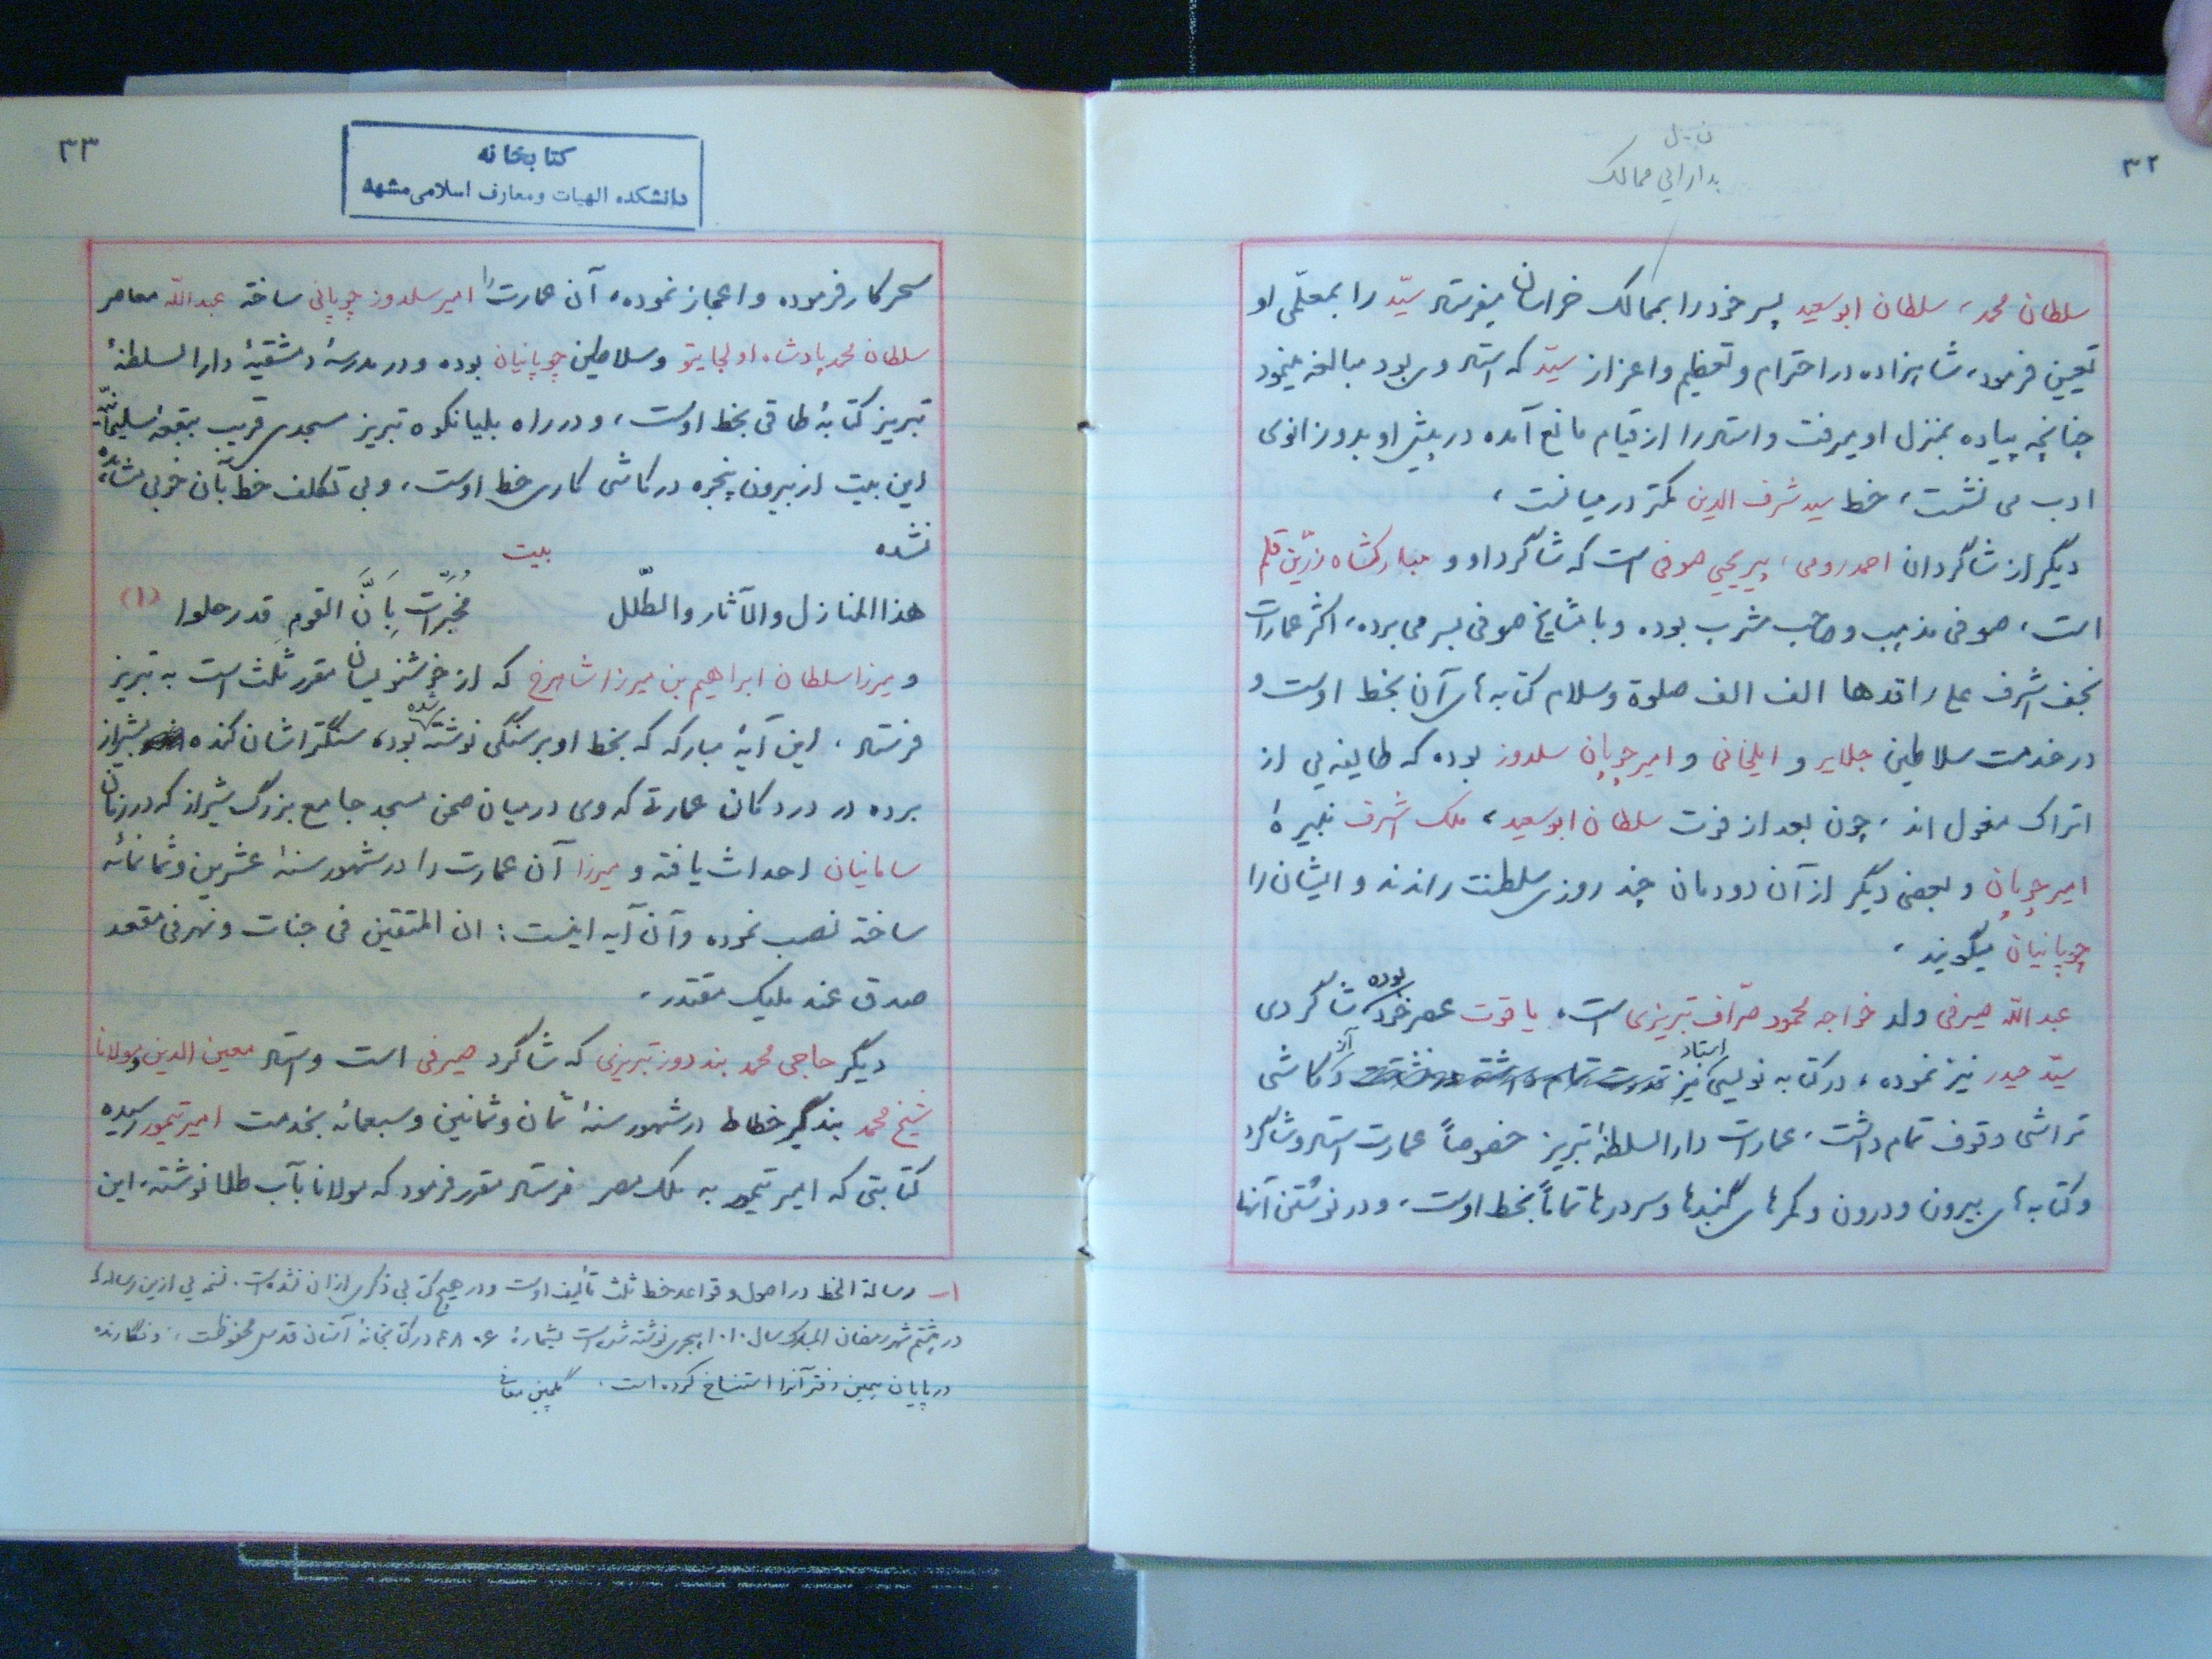 ۳۲
ن - ل
بدارایی ممالک
سلطان محمد، سلطان ابوسعید پسر خود را بممالک خراسان میفرستاد سیّد را بمعلّمی او
تعیین فرمود، شاهزاده در احترام و تعظیم و اعزاز سیّد که استاد وی بود مبالغه مینمود
چنانچه پیاده بمنزل او میرفت و استاد را از قیام مانع آمده در پیش او بدو زانوی
ادب می نشست، خط سید شرف الدین کمتر در میانست،
دیگر از شاگردان احمد رومی، پیر یحیی صوفی است که شاگرد او و مبارکشاه زرّین قلم
است، صوفی مذهب و صاحب مشرب بوده و با مشایخ صوفی بسر می برده، اکثر عمارات
نجف اشرف علی راقدها الف الف صلوة و سلام کتابه‌های آن بخط اوست و
در خدمت سلاطین جلایر و ایلخانی و امیر چوپان سلدوز بوده که طایفه یی از
اتراک مغول اند، چون بعد از فوت سلطان ابوسعید، ملک اشرف نبیرهٔ
امیر چوپان و بعضی دیگر از آن دودمان چند روزی سلطنت راندند و ایشان را
چوپانیان میگویند،
عبدالله صیرفی ولد خواجه محمود صرّاف تبریزی است، یاقوت عصر خود بوده شاگردی
سیّد حیدر نیز نموده، در کتابه نویسی نیز استاد و از کاشی
تراشی وقوف تمام داشت، عمارات دارالسلطنهٔ تبریز خصوصاً عمارت استاد و شاگرد
و کتابه‌های بیرون و درون و کمرهای گنبدها و سردرها تماماً بخط اوست، و در نوشتن آنها
۳۳
کتابخانه
دانشکده الهیات و معارف اسلامی مشهد
سحر کار فرموده و اعجاز نموده، آن عمارت را امیر سلدوز چوپانی ساخته عبدالله معاصر
سلطان محمد پادشاه اولجایتو و سلاطین چوپانیان بوده و در مدرسهٔ دمشقیهٔ دارالسلطنهٔ
تبریز کتابهٔ طاقی بخط اوست، و در راه بلیانکوه تبریز مسجدی قریب ببقعهٔ سلیمانیه
این بیت از بیرون پنجره در کاشی کاری خط اوست، و بی تکلف خط بآن خوبی مشاهده
نشده بیت
هذا المنازل والآثار والطّلل مُخبّراتٌ بِأنَّ القومِ قد رحلوا (۱)
و میرزا سلطان ابراهیم بن میرزا شاهرخ که از خوشنویسان مقرر ثلث است به تبریز
فرستاد، این آیهٔ مبارکه که بخط او بر سنگی نوشته شده بود، سنگتراشان کنده بشیراز
برده در در دکان عمارتی که وی در میان صحن مسجد جامع بزرگ شیراز که در زمان
سامانیان احداث یافته و میرزا آن عمارت را در شهور سنهٔ عشرین و ثمانمائه
ساخته نصب نموده و آن آیه اینست: ان المتقین فی جنات و نهر فی مقعد
صدق عند ملیک مقتدر،
دیگر حاجی محمد بنددوز تبریزی که شاگرد صیرفی است و استاد معین الدین و مولانا
شیخ محمد بندگیر خطاط در شهور سنهٔ ثمان و ثمانین و سبعمائه بخدمت امیر تیمور رسیده
کتابتی که امیر تیمور به ملک مصر فرستاد مقرر فرمود که مولانا بآب طلا نوشته، این
۱ـ رسالة الخط در اصول و قواعد خط ثلث تألیف اوست و در هیچ کتابی ذکری از آن نشده است. نسخه یی ازین رساله که
در هشتم شهر رمضان المبارک سال ۱۰۱۰ هجری نوشته شده است بشمارهٔ ۶۸۰۶ در کتابخانهٔ آستان قدس محفوظست، و نگارنده
در پایان همین دفتر آنرا استنساخ کرده است. گلچین معانی